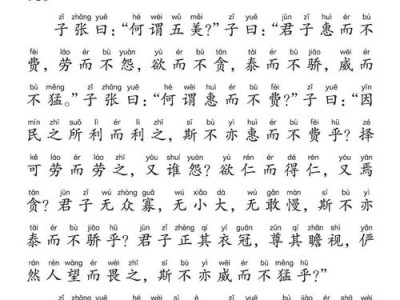 zǐ zhāng yuē hé wèi wǔ měi zǐ yuē jūn zǐ huì ér bù
子张曰:“何谓五美?”子曰:“君子惠而不
fèi láo ér bù yuàn yù ér bù tān tài ér bù jiāo wēi ér
费,劳而不怨,欲而不贪,泰而不骄,威而
bù měng zǐ zhāng yuē hé wèi huì ér bù fèi zǐ yuē yīn
不猛。”子张曰:“何谓惠而不费?”子曰:“因
mín zhī suǒ lì ér lì zhī sī bù yì huì ér bù fèi hū zé
民之所利而利之,斯不亦惠而不费乎?择
kě láo ér láo zhī yòu shuí yuàn yù rén ér dé rén yòu yān
可劳而劳之,又谁怨?欲仁而得仁,又焉
tān jūn zǐ wú zhòng guǎ wú xiǎo dà wú gǎn màn sī bù yì
贪?君子无众寡,无小大,无敢慢,斯不亦
tài ér bù jiāo hū jūn zǐ zhèng qí yī guān zūn qí zhān shì yǎn
泰而不骄乎?君子正其衣冠,尊其瞻视,俨
rán rén wàng ér wèi zhī sī bù yì wēi ér bù měng hū
然人望而畏之,斯不亦威而不猛乎?”
zǐ zhāng yuē hé wèi sì è zǐ yuē